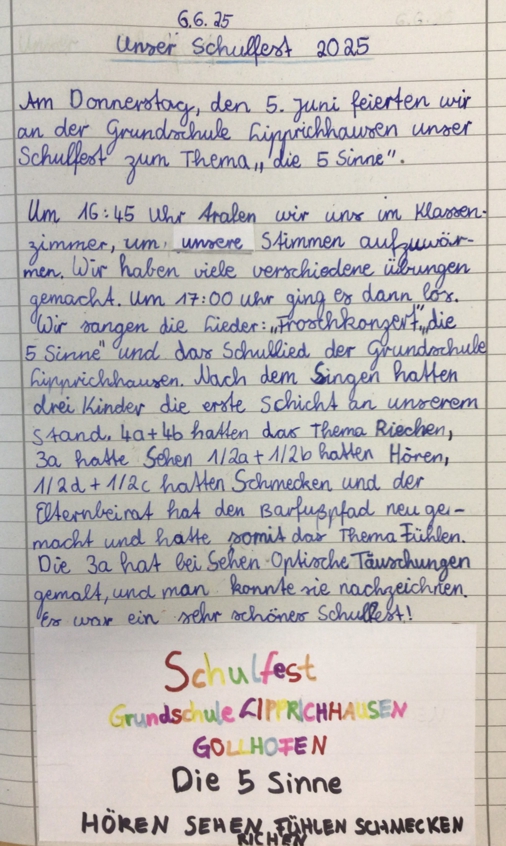 6.6.25
Unser Schulfest 2025
Am Donnerstag, den 5. Juni feierten wir
an der Grundschule Lipprichhausen unser
Schulfest zum Thema „die 5 Sinne".
Um 16:45 Uhr trafen wir uns im Klassen-
zimmer, um unsere Stimmen aufzuwär-
men. Wir haben viele verschiedene Übungen
gemacht. Um 17:00 Uhr ging es dann los.
Wir sangen die Lieder: „Froschkonzert", „die
5 Sinne" und das Schullied der Grundschule
Lipprichhausen. Nach dem Singen hatten
drei Kinder die erste Schicht an unserem
Stand. 4a+4b hatten das Thema Riechen,
3a hatte Sehen 1/2a+1/2b hatten Hören,
1/2d+1/2c hatten Schmecken und der
Elternbeirat hat den Barfußpfad neu ge-
macht und hatte somit das Thema Fühlen.
Die 3a hat bei Sehen Optische Täuschungen
gemalt, und man konnte sie nachzeichnen.
Es war ein sehr schönes Schulfest!
Schulfest
Grundschule LIPPRICHHAUSEN
GOLLHOFEN
Die 5 Sinne
HÖREN SEHEN FÜHLEN SCHMECKEN
RICHEN